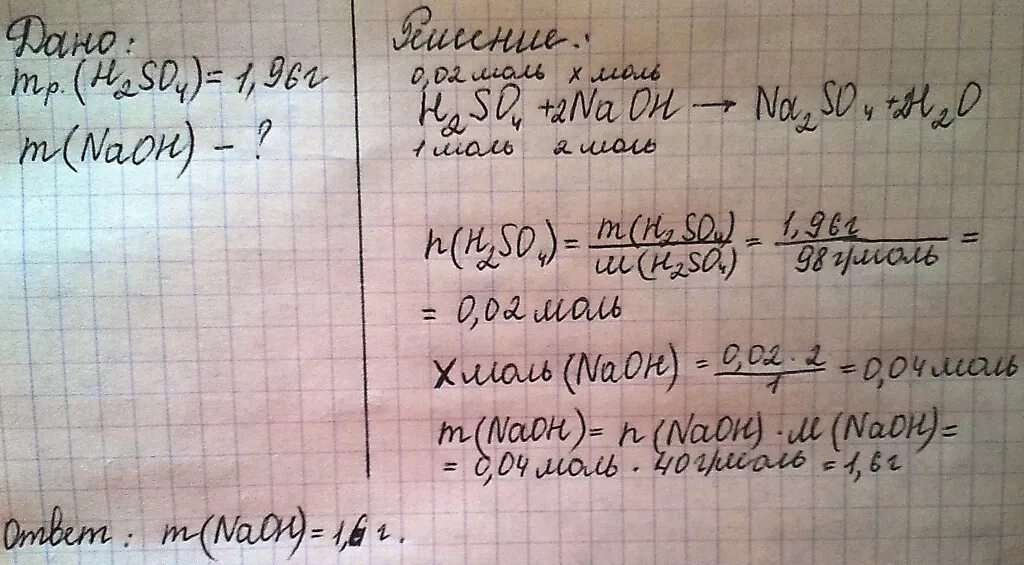 Дано:
mр.(H₂SO₄) = 1,96г
m(NaOH) – ?
Решение:
0,02моль x моль
H₂SO₄ + 2NaOH → Na₂SO₄ + 2H₂O
1 моль 2 моль
n(H₂SO₄) = m(H₂SO₄) / M(H₂SO₄) = 1,96г / 98г/моль =
= 0,02 моль
X моль (NaOH) = 0,02 · 2 / 1 = 0,04 моль
m(NaOH) = n(NaOH) · M(NaOH) =
= 0,04 моль · 40г/моль = 1,6г
Ответ: m(NaOH) = 1,6 г.